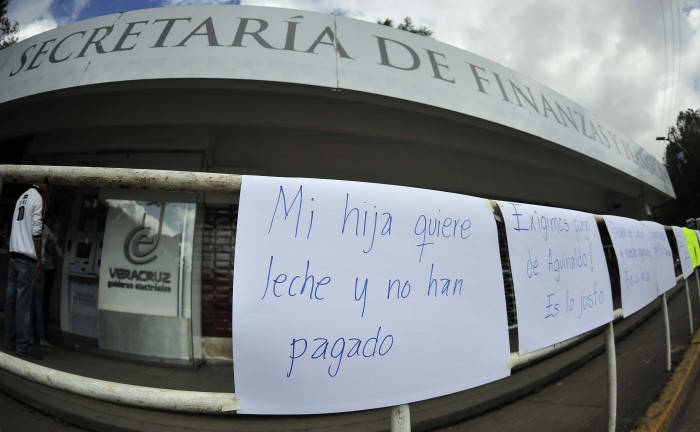 SECRETARÍA DE FINANZAS Y
VERACRUZ
gobierno electrónico
Mi hija quiere
leche y no han
pagado
Exigimos pago
de Aguinaldo!
Es lo justo